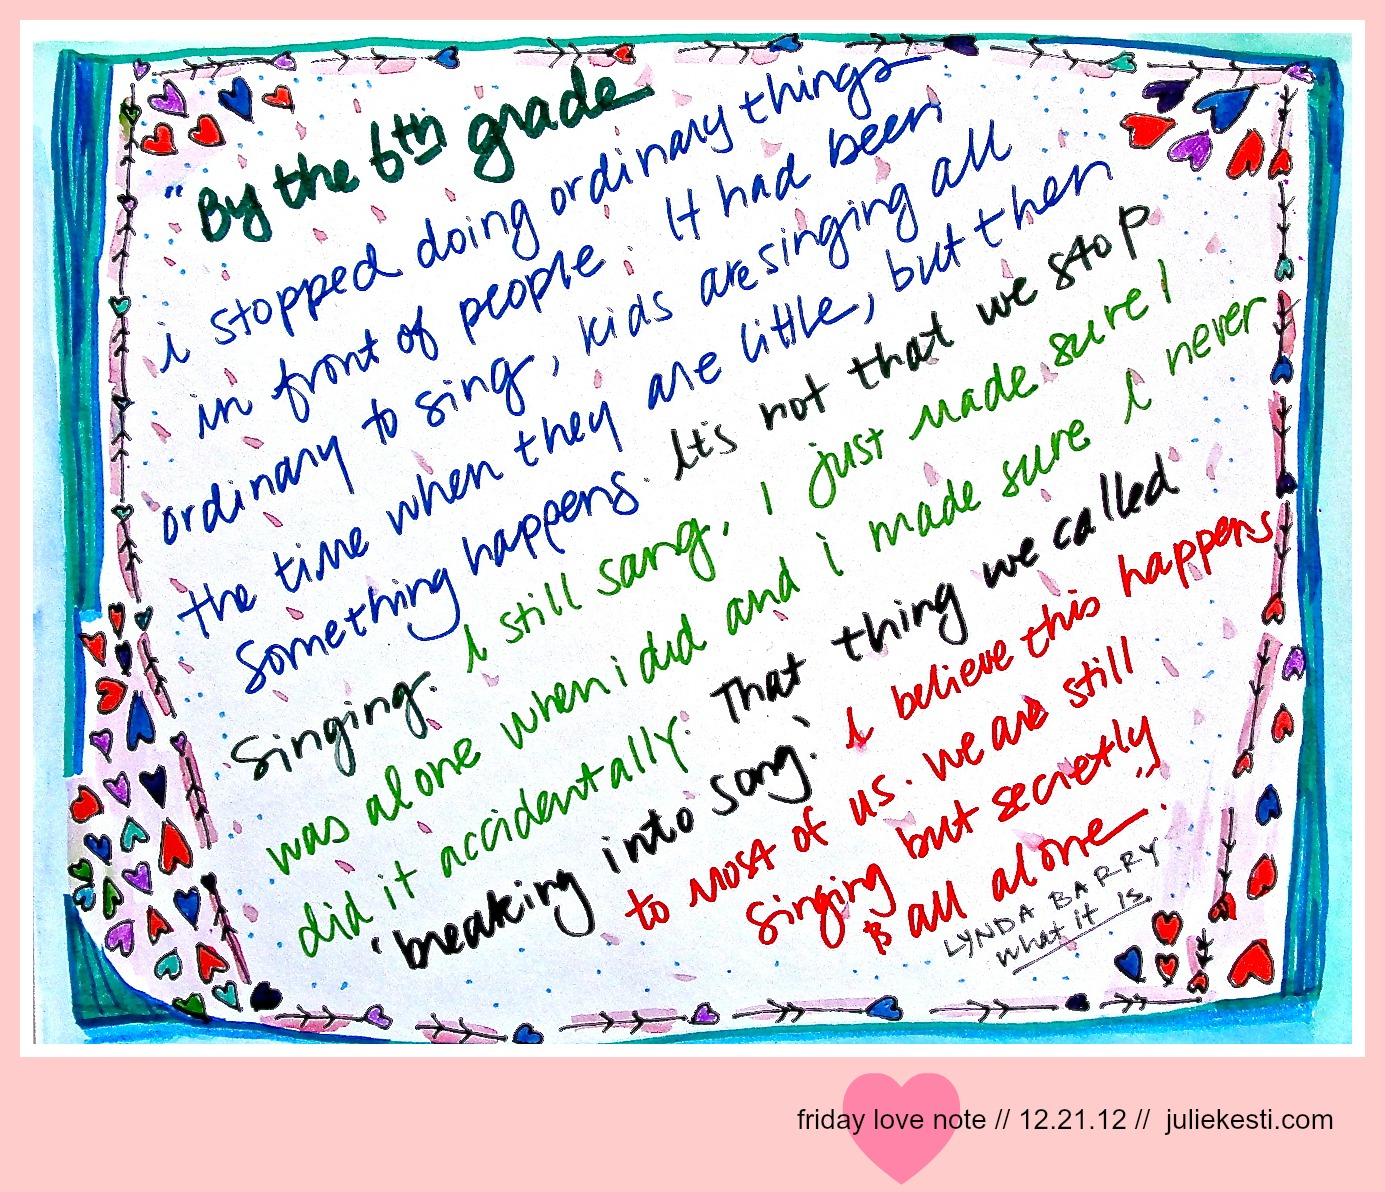 "By the 6th grade
i stopped doing ordinary things
in front of people. It had been
ordinary to sing, kids are singing all
the time when they are little, but then
something happens. It's not that we stop
singing. I still sang, I just made sure I
was alone when i did and i made sure I never
did it accidentally. That thing we called
'breaking into song.' I believe this happens
to most of us. We are still
singing but secretly
& all alone."
LYNDA BARRY
what it is.
friday love note // 12.21.12 // juliekesti.com